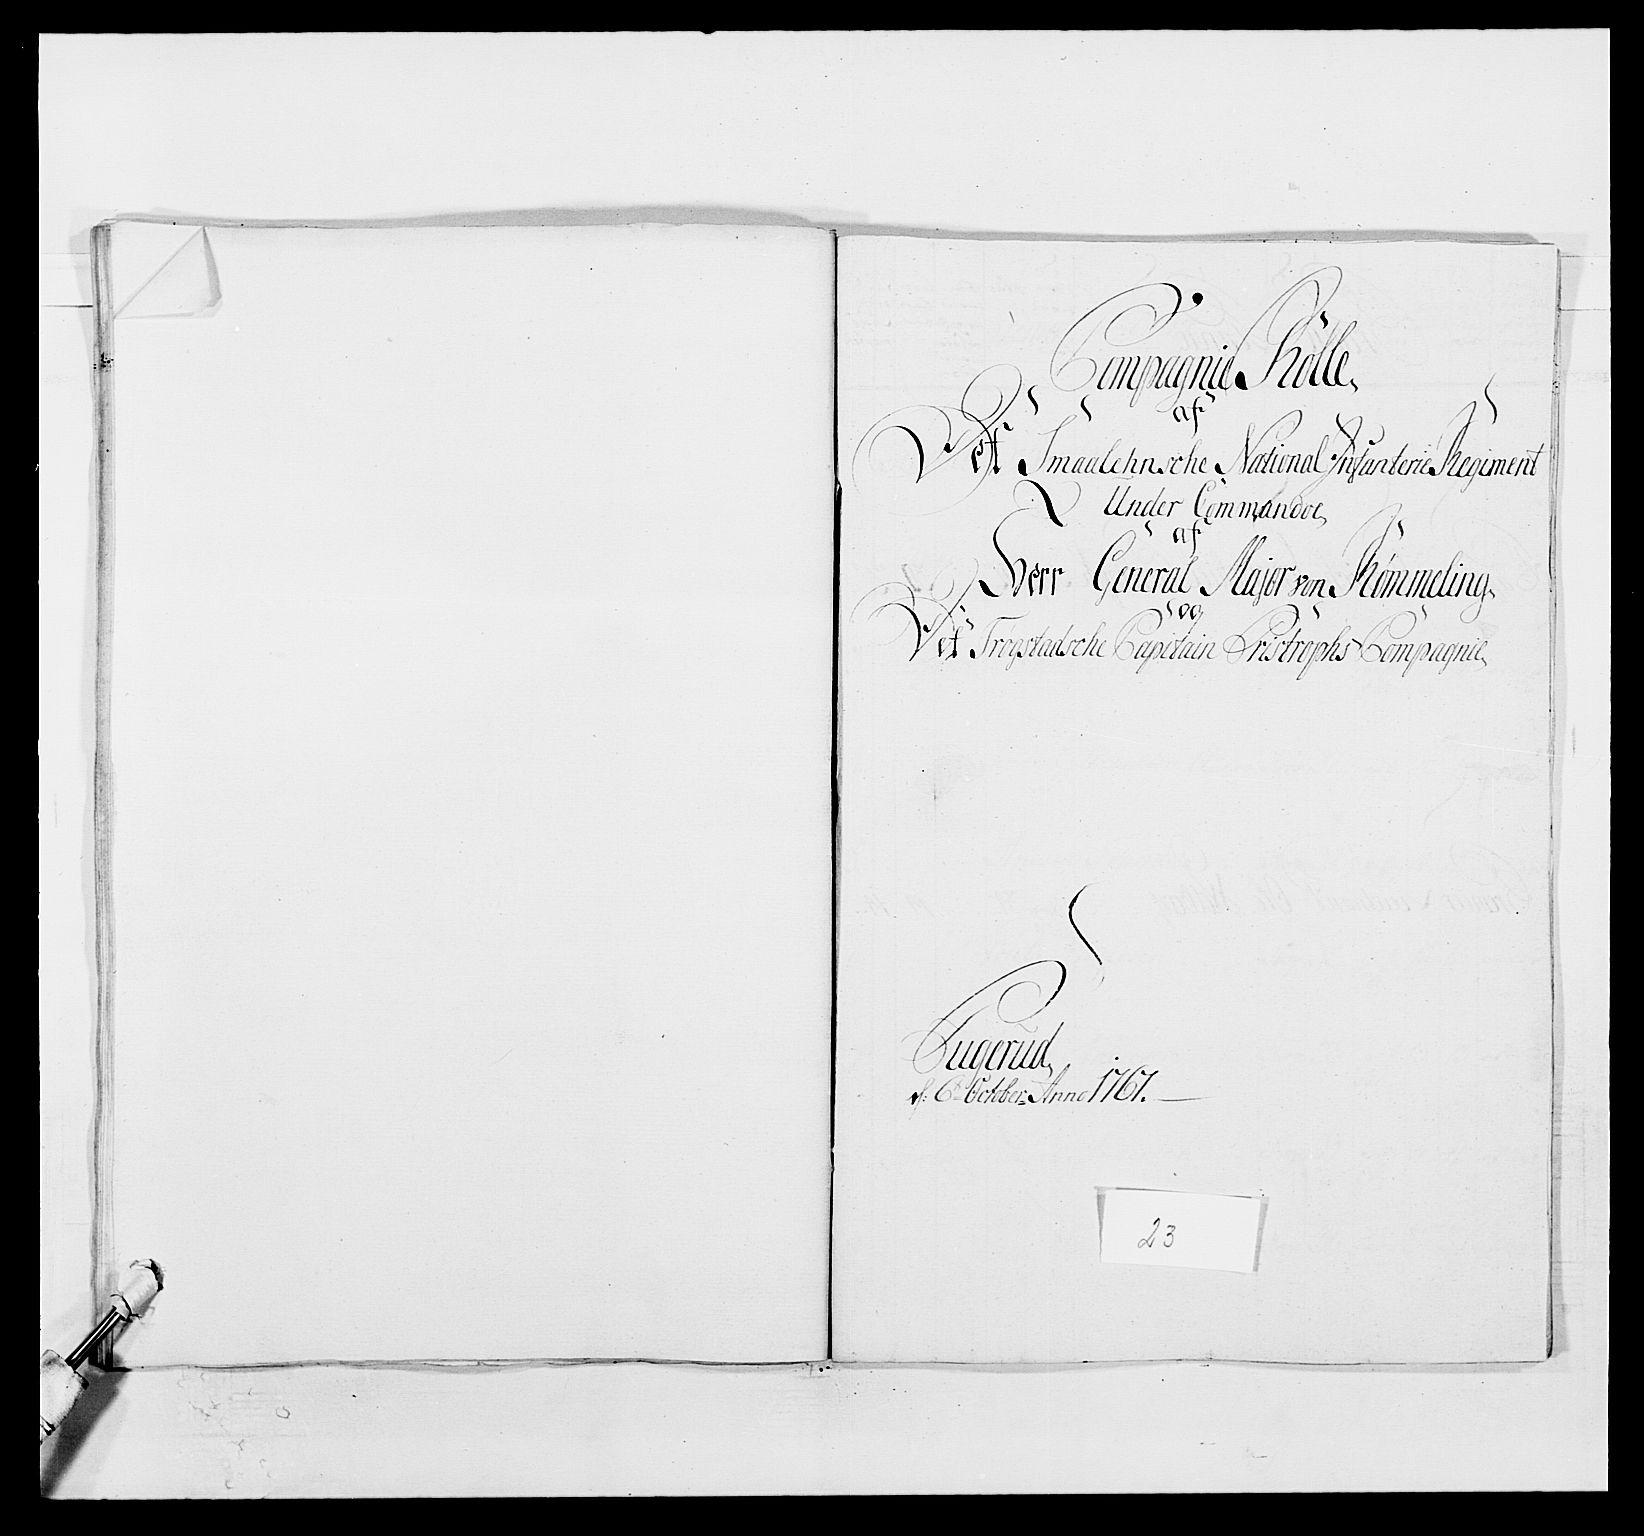 Compagnie Rolle,
af
Det Smaalehnsche National Infanterie Regiment
Under Commandoe,
af
Herr General Major von Rømmeling,
og
Det Trøgstadsche Capitain Tristrophs Compagnie,
d: 6te October Anno 1767.
23